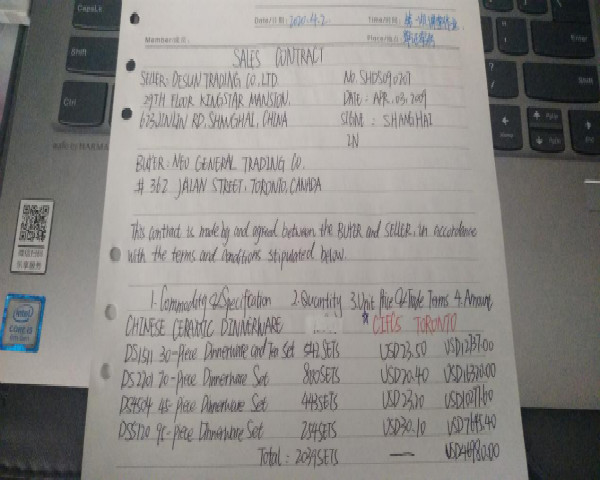 CapsLk
Shift
Ctrl
Date/日期 2020.4.2. Time/时间
Member/成员: Place/地点
SALES CONTRACT
SELLER: DESUN TRADING CO., LTD. NO. SHDS090207
29TH FLOOR KINGSTAR MANSION, DATE: APR. 03, 2009
623 JINLIN RD., SHANGHAI, CHINA SIGNE: SHANGHAI
IN
BUYER: NEO GENERAL TRADING CO.
# 362 JALAN STREET, TORONTO, CANADA
This contract is made by and agreed between the BUYER and SELLER, in accordance
with the terms and conditions stipulated below.
1. Commodity & Specification 2. Quantity 3. Unit Price & Trade Terms 4. Amount
CHINESE CERAMIC DINNERWARE CIFC5 TORONTO
DS1511 30-Piece Dinnerware and Tea Set 542SETS USD23.50 USD12737.00
DS2201 20-Piece Dinnerware Set 800SETS USD20.40 USD16320.00
DS4504 45-Piece Dinnerware Set 443SETS USD23.20 USD10277.60
DS5120 95-Piece Dinnerware Set 254SETS USD30.10 USD7645.40
Total: 2039SETS — USD46980.00
intel